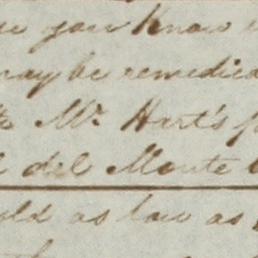 you know
may be remedied
Mr. Hart's
del Monte
old as low as